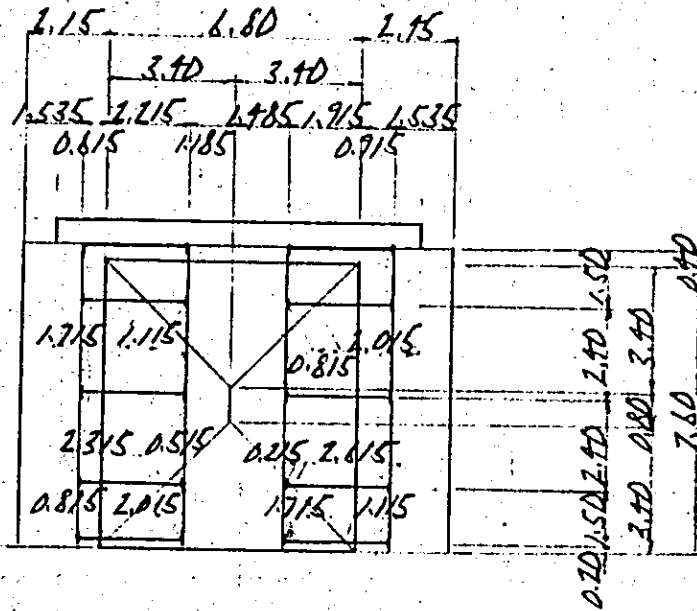 2.15 6.80 2.45
3.40 3.40
1.535 2.215 1.485 1.915 1.535
0.615 1.185 0.915
1.715 1.115 0.815 2.015
2.315 0.515 0.215 2.615
0.815 2.015 1.715 1.115
0.20 1.50 2.40 2.40 1.50
3.40 0.80 3.40
7.60 0.40